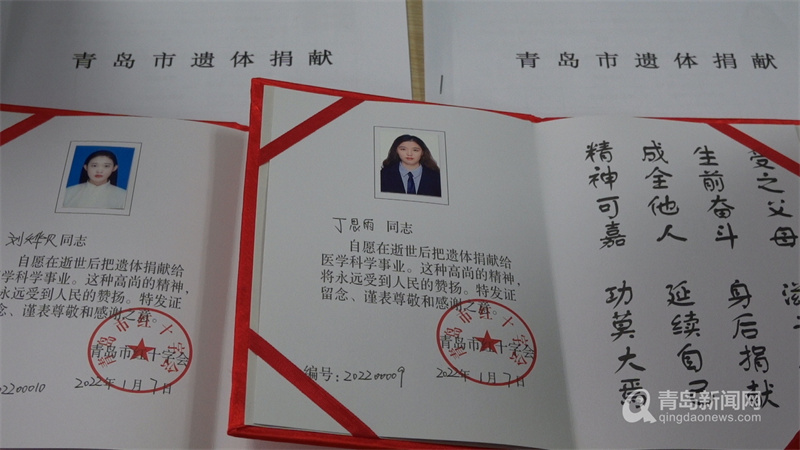 青岛市遗体捐献
青岛市遗体捐献
同志
自愿在逝世后把遗体捐献给
医学科学事业。这种高尚的精神,
永远受到人民的赞扬。特发证
念、谨表尊敬和感谢之意。
青岛市红十字会
青岛市红十字会
2022年1月7日
02200010
丁晨雨 同志
自愿在逝世后把遗体捐献给
医学科学事业。这种高尚的精神,
将永远受到人民的赞扬。特发证
留念、谨表尊敬和感谢之意。
青岛市红十字会
青岛市红十字会
编号:202200009
2022年1月7日
受之父母
生前奋斗 身后捐献
成全他人 延续自己
精神可嘉 功莫大焉
青岛新闻网
qingdaonews.com